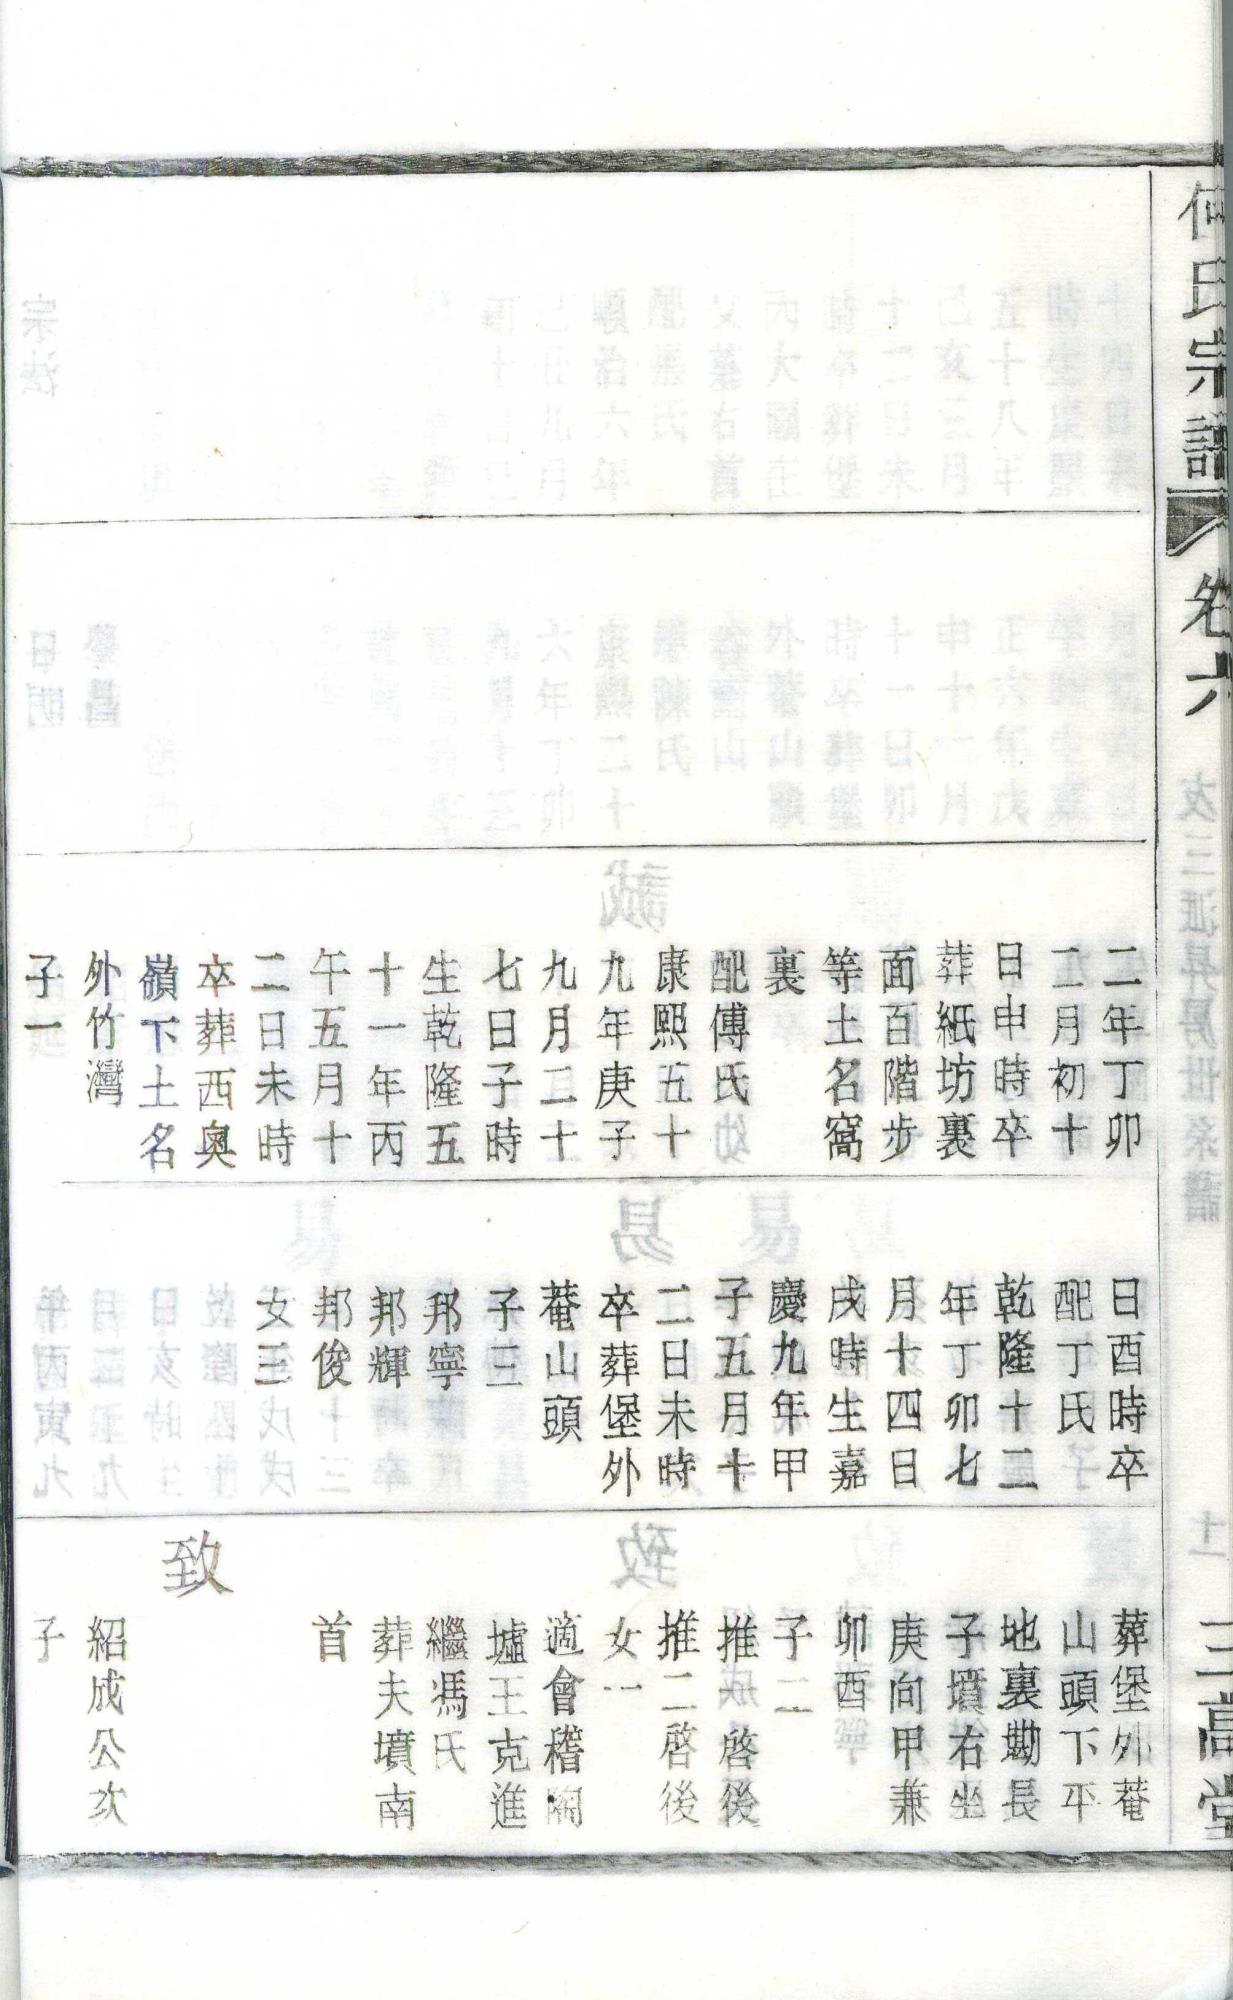 何氏宗譜
卷六
三高堂
二年丁卯
二月初十
日申時卒
葬紙坊裏
面百階步
等土名窩
裏
配傅氏
康熙五十
九年庚子
九月二十
七日子時
生乾隆五
十一年丙
午五月十
二日未時
卒葬西奥
嶺下土名
外竹灣
子一
日酉時卒
配丁氏
乾隆十二
年丁卯七
月十四日
戌時生嘉
慶九年甲
子五月十
二日未時
卒葬堡外
菴山頭
子三
邦寧
邦輝
邦俊
女三
葬堡外菴
山頭下平
地裏勘長
子墳右坐
庚向甲兼
卯酉
子二
推啓後
推二啓後
女一
適會稽陶
墟王克進
繼馮氏
葬夫墳南
首
致
紹成公次
子